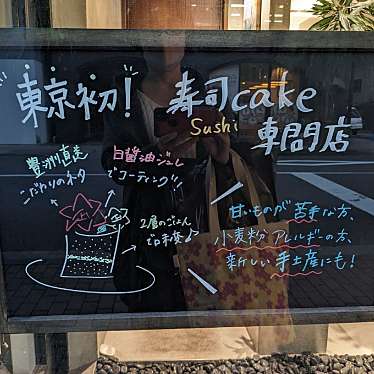 東京初! 寿司cake
Sushi
専門店
豊洲直送
こだわりのネタ
白醤油ジュレ
でコーティング!
2層のごはん
甘いものが苦手な方、
小麦粉アレルギーの方、
新しい手土産にも!